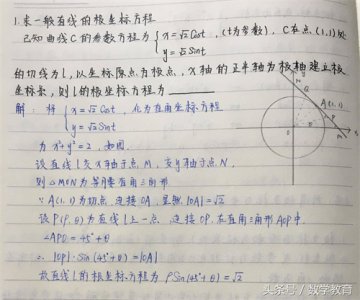 1. 求一般直线的极坐标方程
已知曲线C的参数方程为 { x=√2 Cost, y=√2 Sint (t为参数), C在点(1,1)处
的切线为l, 以坐标原点为极点, x轴的正半轴为极轴建立极
坐标系, 则l的极坐标方程为
解: 将 { x=√2 Cost, y=√2 Sint 化为直角坐标方程
为 x²+y²=2, 如图.
设直线l交x轴于点M, 交y轴于点N,
则△MON为等腰直角三角形
∵ A(1,1)为切点, 连接OA, 显然|OA|=√2
设P(ρ,θ)为直线l上一点, 连接OP, 在直角三角形AOP中.
∠APO=45°+θ
∴ |OP|·Sin(45°+θ)=|OA|
故直线l的极坐标方程为 ρSin(45°+θ)=√2
A(1,1)
头条号/数学教育